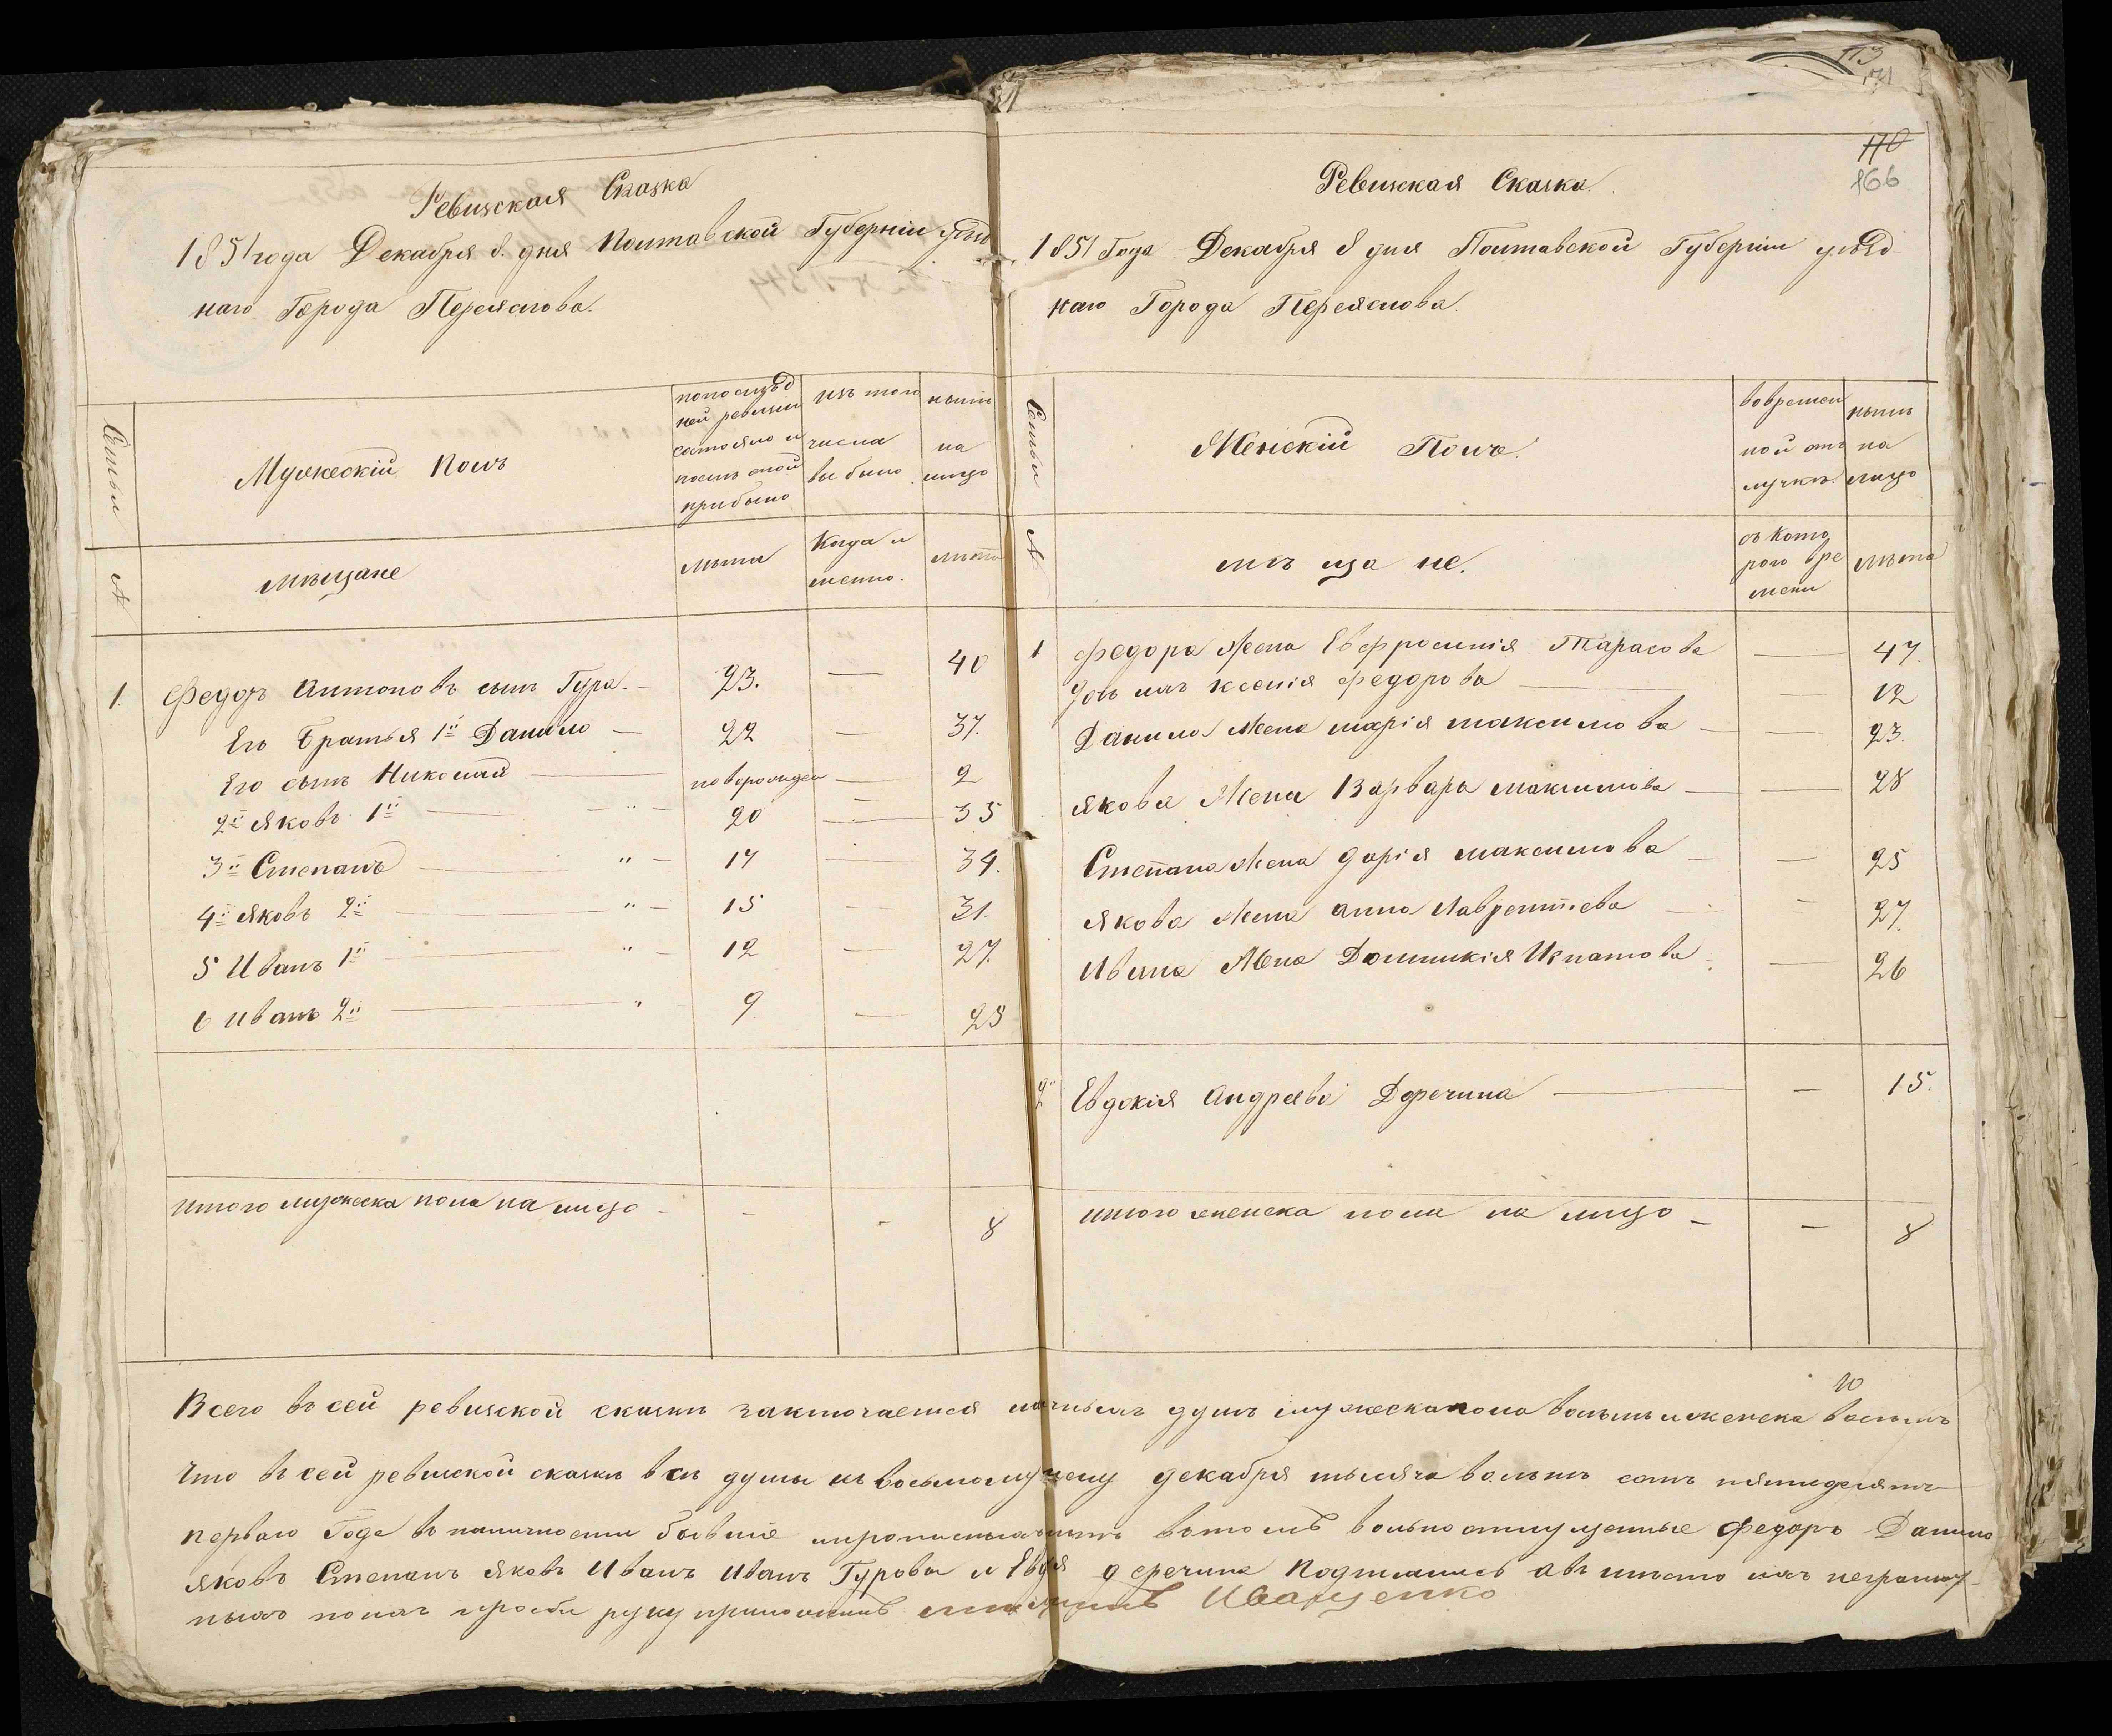 Ревизская Сказка
1851 года Декабря 8. дня Полтавской Губерніи уѣзд
наго Города Переяслова.
Семьи
Мужескій полъ
по послѣд
ней ревизіи
состояло и
послѣ оной
прибыло
изъ того
числа
выбыло
нынѣ
на
лицо
№
мѣщане
лѣта
Когда и
менно.
лѣта
1. Федоръ Антоновъ сынъ Гура. — 23. — 40
Его Братья 1й Данило — 22 — 37.
Его сынъ Николай — новорожден — 2
2й Яковъ 1й — " — 20 — 35
3й Степанъ — " — 17 34.
4й Яковъ 2й — " — 15 — 31.
5 Иванъ 1й — " — 12 — 27.
6 Иванъ 2й — " — 9 — 25
Итого мужеска пола на лицо - - - 8
113
171
170
166
Ревизская Сказка.
1851 Года Декабря 8 дня Полтавской Губерніи уѣзд
наго Города Переяслова.
Семьи
Женскій Полъ.
во времен
ной отъ
лучкѣ.
нынѣ
на
лицо
№
мѣщане.
съ кото
рого вре
мени
лѣта
1 Федора Жена Евфросинія Тарасова — 47.
Дочь ихъ Ксенія Федорова — — 12
Данила Жена Марія Максимова — — 23.
Якова Жена Варвара Максимова — — 28
Степана Жена Дарія Максимова — 25
Якова Жена Анна Лаврентіева — - 27.
Ивана Жена Домникія Игнатова — 26
2й Евдокія Андреева Деречина — — 15.
Итого женска пола на лицо — — 8
Всего въ сей ревизской сказкѣ заключается наличныхъ душъ мужеска пола восьмь и женска восьмь
Что въ сей ревизской сказкѣ всѣ души къ восьмому числу декабря тысяча восьмъ сотъ пятидесятъ
перваго Года въ наличности бывшіе въ томъ вольноотпущенные Федоръ Данило
Яковъ Степанъ Яковъ Иванъ Иванъ Гуровы и Деречина Подписались а вмѣсто ихъ неграмот-
ныхъ по ихъ прозбѣ руку приложилъ Иващенко